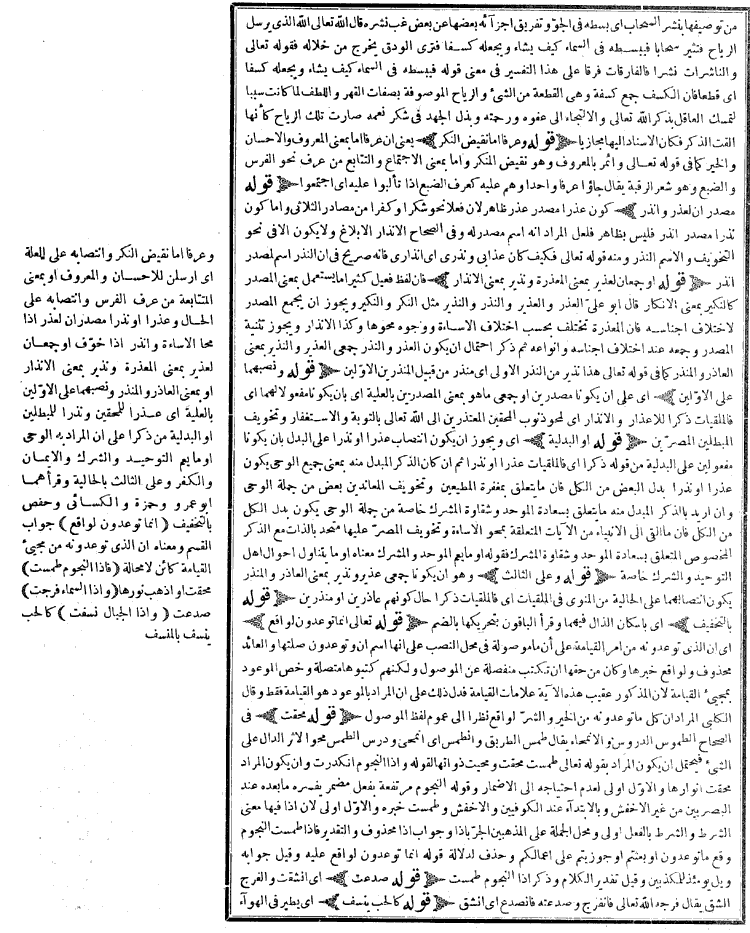 من توصيفها بنشر السحاب اى بسطه فى الجو وتفريق اجزآئه بعضها عن بعض غب نشره قال الله تعالى الله الذى يرسل
الرياح فتثير سحابا فيبسطه فى السماء كيف يشاء ويجعله كسفا فترى الودق يخرج من خلاله فقوله تعالى
والناشرات نشرا فالفارقات فرقا على هذا التفسير فى معنى قوله فيبسطه فى السماء كيف يشاء ويجعله كسفا
اى قطعا فان الكسف جمع كسفة وهى القطعة من الشئ والرياح الموصوفة بصفات القهر واللطف لما كانت سببا
لتمسك العاقل بذكر الله تعالى والالتجاء الى عفوه ورحمته وبذل الجهد فى شكر نعمه صارت تلك الرياح كأنها
القت الذكر فكان الاسناد اليها مجازيا ﴿ قوله وعرفا اما نقيض النكر ﴾ يعنى ان عرفا اما بمعنى المعروف والاحسان
والخير كما فى قوله تعالى وائمر بالمعروف وهو نقيض المنكر واما بمعنى الاجتماع والتتابع من عرف نحو الفرس
والضبع وهو شعر الرقبة يقال جاؤا عرفا واحدا وهم عليه كعرف الضبع اذا تألبوا عليه اى اجتمعوا ﴿ قوله
مصدران لعذر وانذر ﴾ كون عذرا مصدر عذر ظاهر لان فعلا نحو شكرا وكفرا من مصادر الثلاثى واما كون
نذرا مصدر انذر فليس بظاهر فلعل المراد انه اسم مصدر له وفى الصحاح الانذار الابلاغ ولا يكون الا فى نحو
التخويف والاسم النذر ومنه قوله تعالى فكيف كان عذابى ونذرى اى انذارى فانه صريح فى ان النذر اسم لمصدر
انذر ﴿ قوله او جمعان لعذير بمعنى المعذرة ونذير بمعنى الانذار ﴾ فان لفظ فعيل كثيرا ما يستعمل بمعنى المصدر
كالنكير بمعنى الانكار قال ابو على العذر والعذير والنذر والنذير مثل النكر والنكير ويجوز ان يجمع المصدر
لاختلاف اجناسه فان المعذرة تختلف بحسب اختلاف الاساءة ووجوه محوها وكذا الانذار ويجوز تثنية
المصدر وجمعه عند اختلاف اجناسه وانواعه ثم ذكر احتمال ان يكون العذر والنذر جمعى العذير والنذير بمعنى
العاذر والمنذر كما فى قوله تعالى هذا نذير من النذر الاولى اى منذر من قبيل المنذرين الاولين ﴿ قوله ونصبهما
على الاولين ﴾ اى على ان يكونا مصدرين او جمعى ما هو بمعنى المصدرين بالعلية اى بان يكونا مفعولا لهما اى
فالملقيات ذكرا للاعذار والانذار اى لمحو ذنوب المحقين المعتذرين الى الله تعالى بالتوبة والاستغفار وتخويف
المبطلين المصرين ﴿ قوله او البدلية ﴾ اى ويجوز ان يكون انتصاب عذرا او نذرا على البدل بان يكونا
مفعولين على البدلية من قوله ذكرا اى فالملقيات عذرا او نذرا ثم ان كان الذكر المبدل منه بمعنى جميع الوحى يكون
عذرا او نذرا بدل البعض من الكل فان ما يتعلق بمغفرة المطيعين وتخويف المعاندين بعض من جملة الوحى
وان اريد بالذكر المبدل منه ما يتعلق بسعادة الموحد وشقاوة المشرك خاصة من جملة الوحى يكون بدل الكل
من الكل فان ما القى الى الانبياء من الآيات المتعلقة بمحو الاساءة وتخويف المصر عليها متحد بالذات مع الذكر
المخصوص المتعلق بسعادة الموحد وشقاوة المشرك فقوله او ما يعم الموحد والمشرك معناه او ما يتناول احوال اهل
التوحيد والشرك خاصة ﴿ قوله وعلى الثالث ﴾ وهو ان يكونا جمعى عذير ونذير بمعنى العاذر والمنذر
يكون انتصابهما على الحالية من المنوى فى الملقيات اى فالملقيات ذكرا حال كونهم عاذرين او منذرين ﴿ قوله
بالتخفيف ﴾ اى باسكان الذال فيهما وقرأ الباقون بتحريكها بالضم ﴿ قوله تعالى انما توعدون لواقع ﴾
اى ان الذى توعدونه من امر القيامة على أن ما موصولة فى محل النصب على انها اسم ان وتوعدون صلتها والعائد
محذوف ولواقع خبرها وكان من حقها ان تكتب منفصلة عن الموصول ولكنهم كتبوها متصلة وخص الموعود
بمجيئ القيامة لان المذكور عقيب هذه الآية علامات القيامة فدل ذلك على ان المراد بالموعود هو القيامة فقط وقال
الكلبى المراد ان كل ما توعدونه من الخير والشر لواقع نظرا الى عموم لفظ الموصول ﴿ قوله محقت ﴾ فى
الصحاح الطموس الدروس والانمحاء يقال طمس الطريق وانطمس اى انمحى ودرس الطمس محو الاثر الدال على
الشئ فيحتمل ان يكون المراد بقوله تعالى طمست محقت ومحيت ذواتها لقوله واذا النجوم انكدرت وان يكون المراد
محقت انوارها والاول اولى لعدم احتياجه الى الاضمار وقوله النجوم مرتفعة بفعل مضمر يفسره ما بعده عند
البصريين من غير الاخفش وبالابتدآء عند الكوفيين والاخفش وطمست خبره والاول اولى لان اذا فيها معنى
الشرط والشرط بالفعل اولى ومحل الجملة على المذهبين الجر باذا وجواب اذا محذوف والتقدير فاذا طمست النجوم
وقع ما توعدون او بعثتم او جوزيتم على اعمالكم وحذف لدلالة قوله انما توعدون لواقع عليه وقيل جوابه
ويل يومئذ للمكذبين وقيل تقدير الكلام وذكر اذا النجوم طمست ﴿ قوله صدعت ﴾ اى انشقت والفرج
الشق يقال فرجه الله تعالى فانفرج وصدعته فانصدع اى انشق ﴿ قوله كالحب ينسف ﴾ اى يطير فى الهوآء
وعرفا اما نقيض النكر وانتصابه على للعلة
اى ارسلن للاحسان والمعروف او بمعنى
المتتابعة من عرف الفرس وانتصابه على
الحال وعذرا او نذرا مصدران لعذر اذا
محا الاساءة وانذر اذا خوف او جمعان
لعذير بمعنى المعذرة ونذير بمعنى الانذار
او بمعنى العاذر والمنذر ونصبهما على الاولين
بالعلية اى عذرا للمحقين ونذرا للمبطلين
او البدلية من ذكرا على ان المراد به الوحى
او ما يعم التوحيد والشرك والايمان
والكفر وعلى الثالث بالحالية وقرأهما
ابو عمرو وحمزة والكسائى وحفص
بالتخفيف (انما توعدون لواقع) جواب
القسم ومعناه ان الذى توعدونه من مجيئ
القيامة كائن لا محالة (فاذا النجوم طمست)
محقت او اذهب نورها (واذا السماء فرجت)
صدعت (واذا الجبال نسفت) كالحب
ينسف بالمنسف